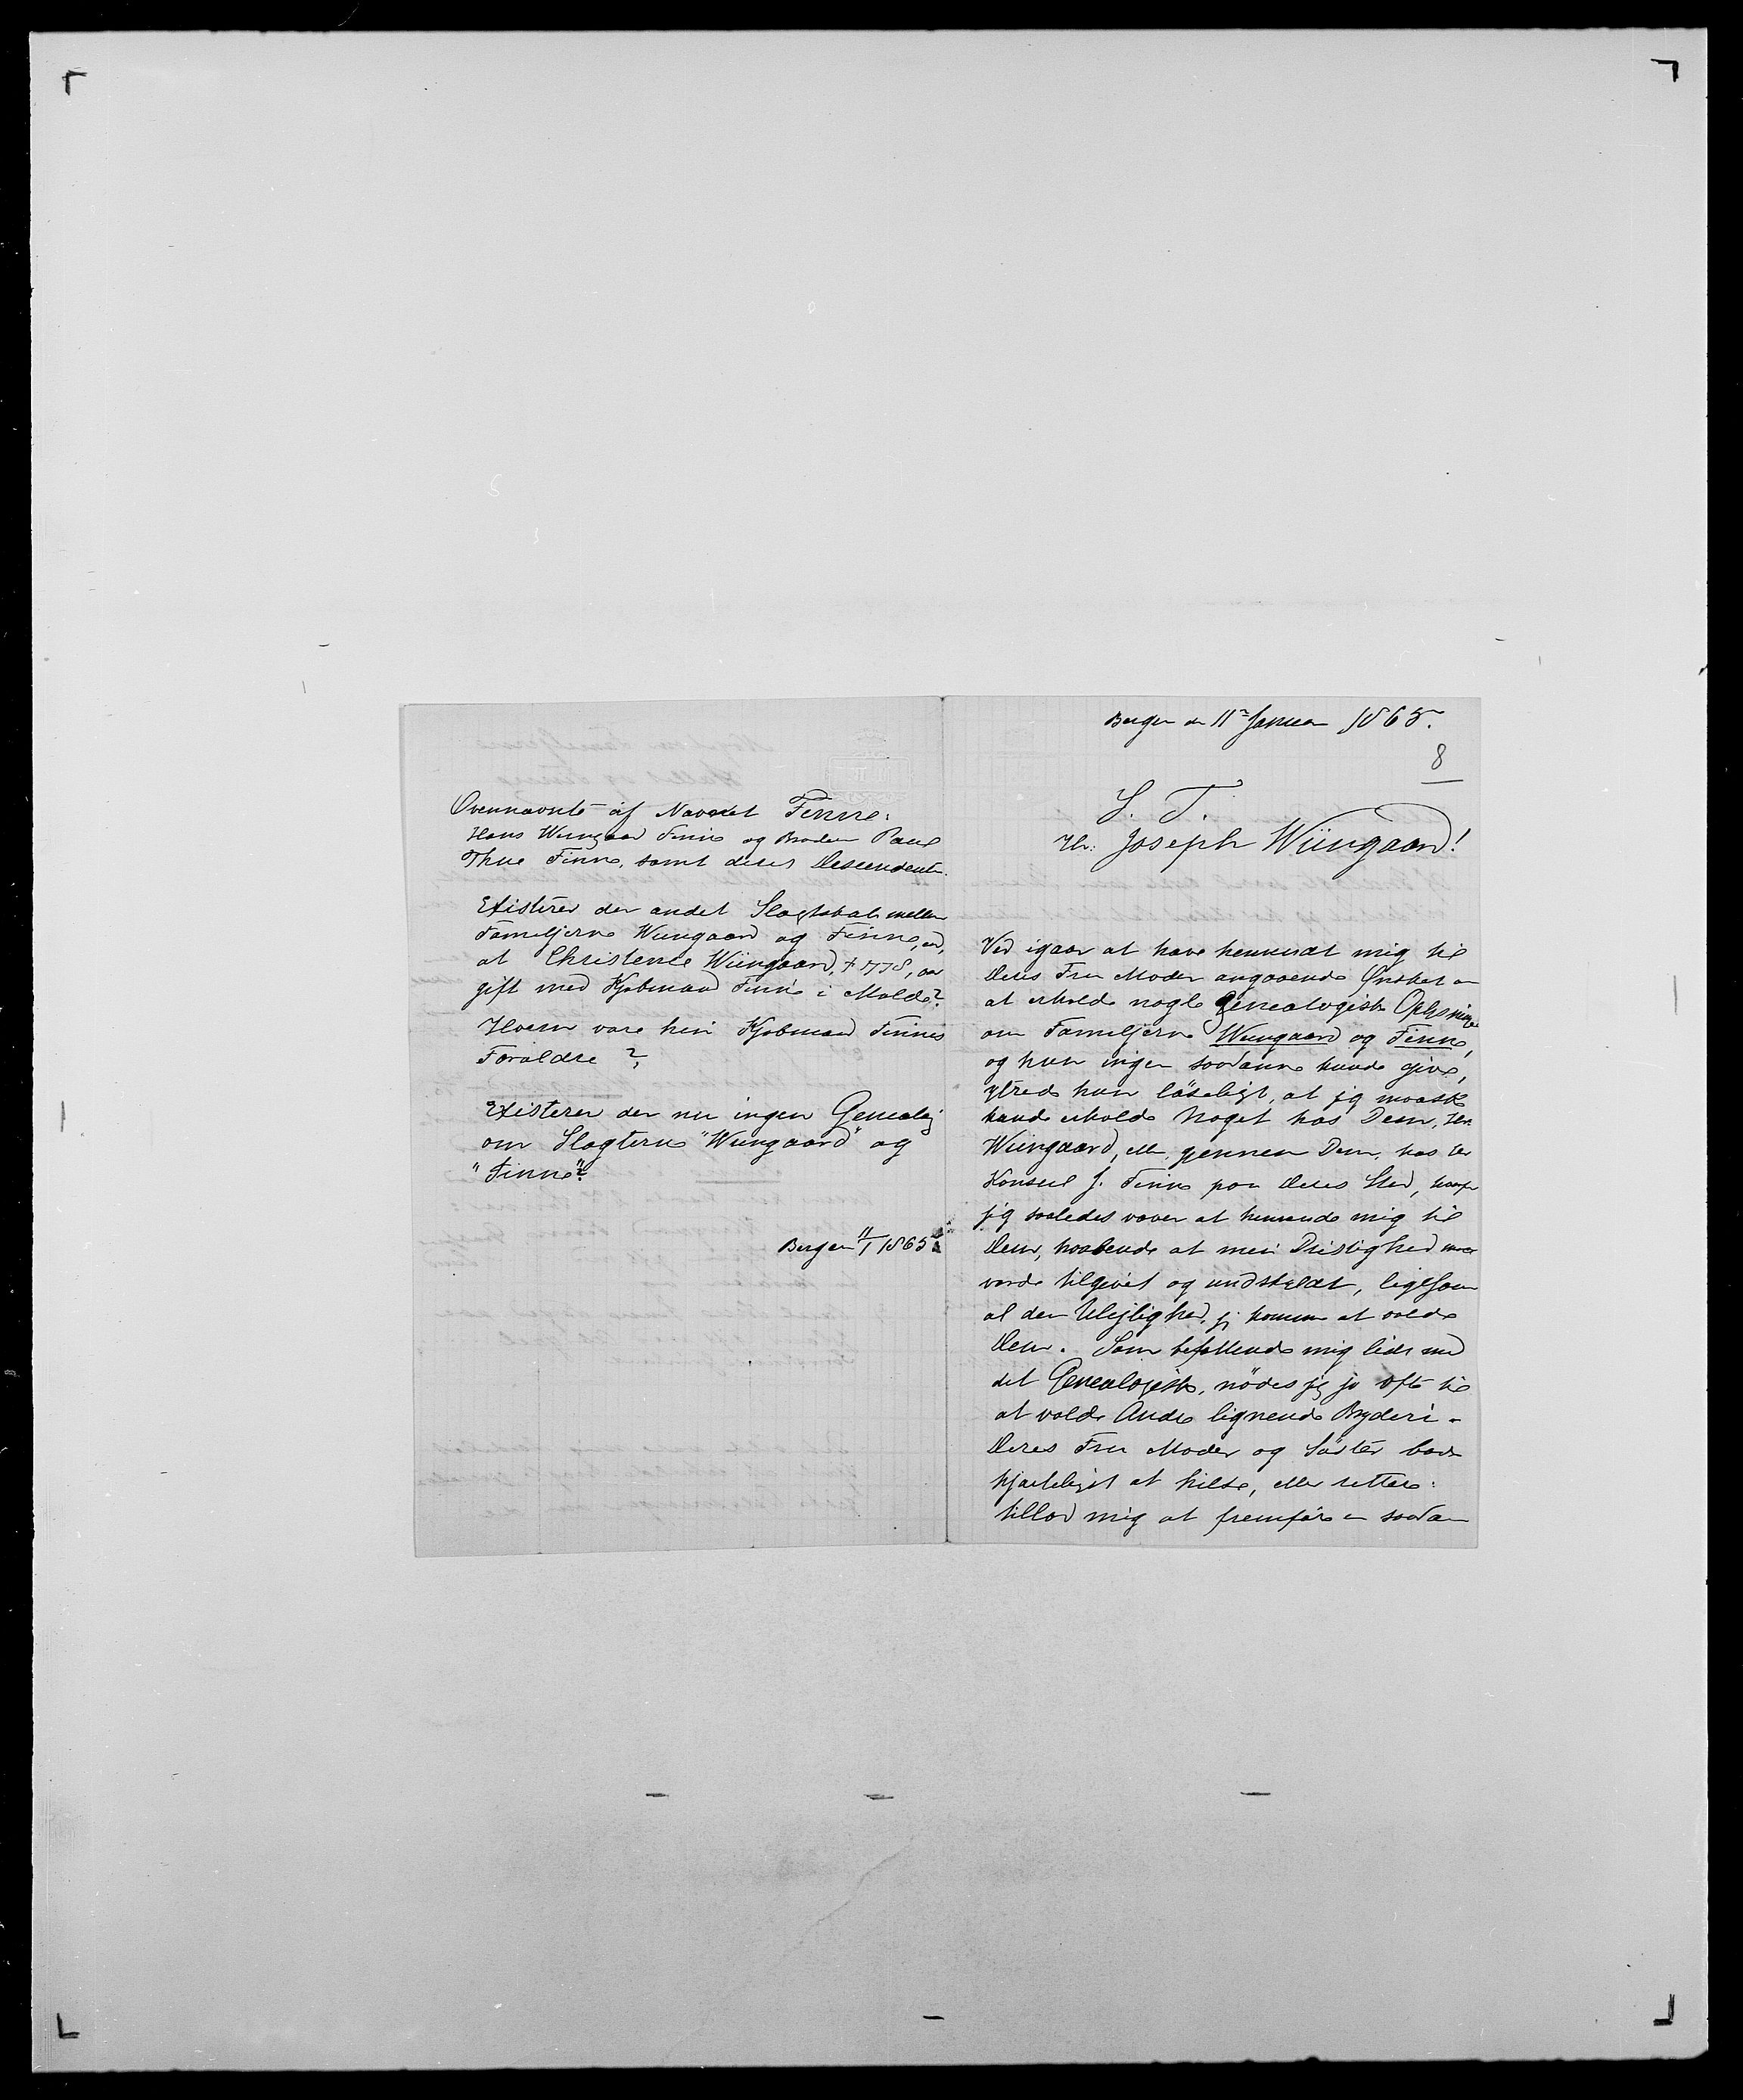 Ovennævnte af Navnet Finne:
Hans Wiingaard Finne og Broderen Paul
Thue Finne, samt deres Descendente.
Existerer der andet Slægtskab mellem
Familjerne Wiingaard og Finne, end,
at Christence Wiingaard, † 1778, var
gift med Kjøbmand Finne i Molde?
Hvem vare hin Kjøbmand Finnes
Forældre?
Existerer der nu ingen Genealogi
om Slægterne "Wiingaard" og
"Finne"?
Bergen 11/1 1865
Bergen den 11te Januar 1865.
8
S. T.
Hr. Joseph Wiingaard!
Ved igaar at have henvendt mig til
Deres Fru Moder angaaende Ønsket om
at erholde nogle genealogiske Oplysninger
om Familjerne Wiingaard og Finne,
og hun ingen saadanne kunde give,
ytrede hun, at jeg maaske
kunde erholde Noget hos Dem, Hr.
Wiingaard, eller gennem Dem, hos Hr
Konsul J. Finne paa Deres Sted, hvorfor
jeg saaledes vover at henvende mig til
Dem, haabende at min Dristighed maa
vorde tilgivet og undskyldt, ligesom
al den Ulejlighed, jeg kommer at volde
Dem. Som befattende mig lidt med
det Genealogiske, nødes jeg jo ofte til
at volde Andre lignende Bryderi.
Deres Fru Moder og Söster bad
hjerteligst at hilse, eller rettere:
tillod mig at fremföre en saadan